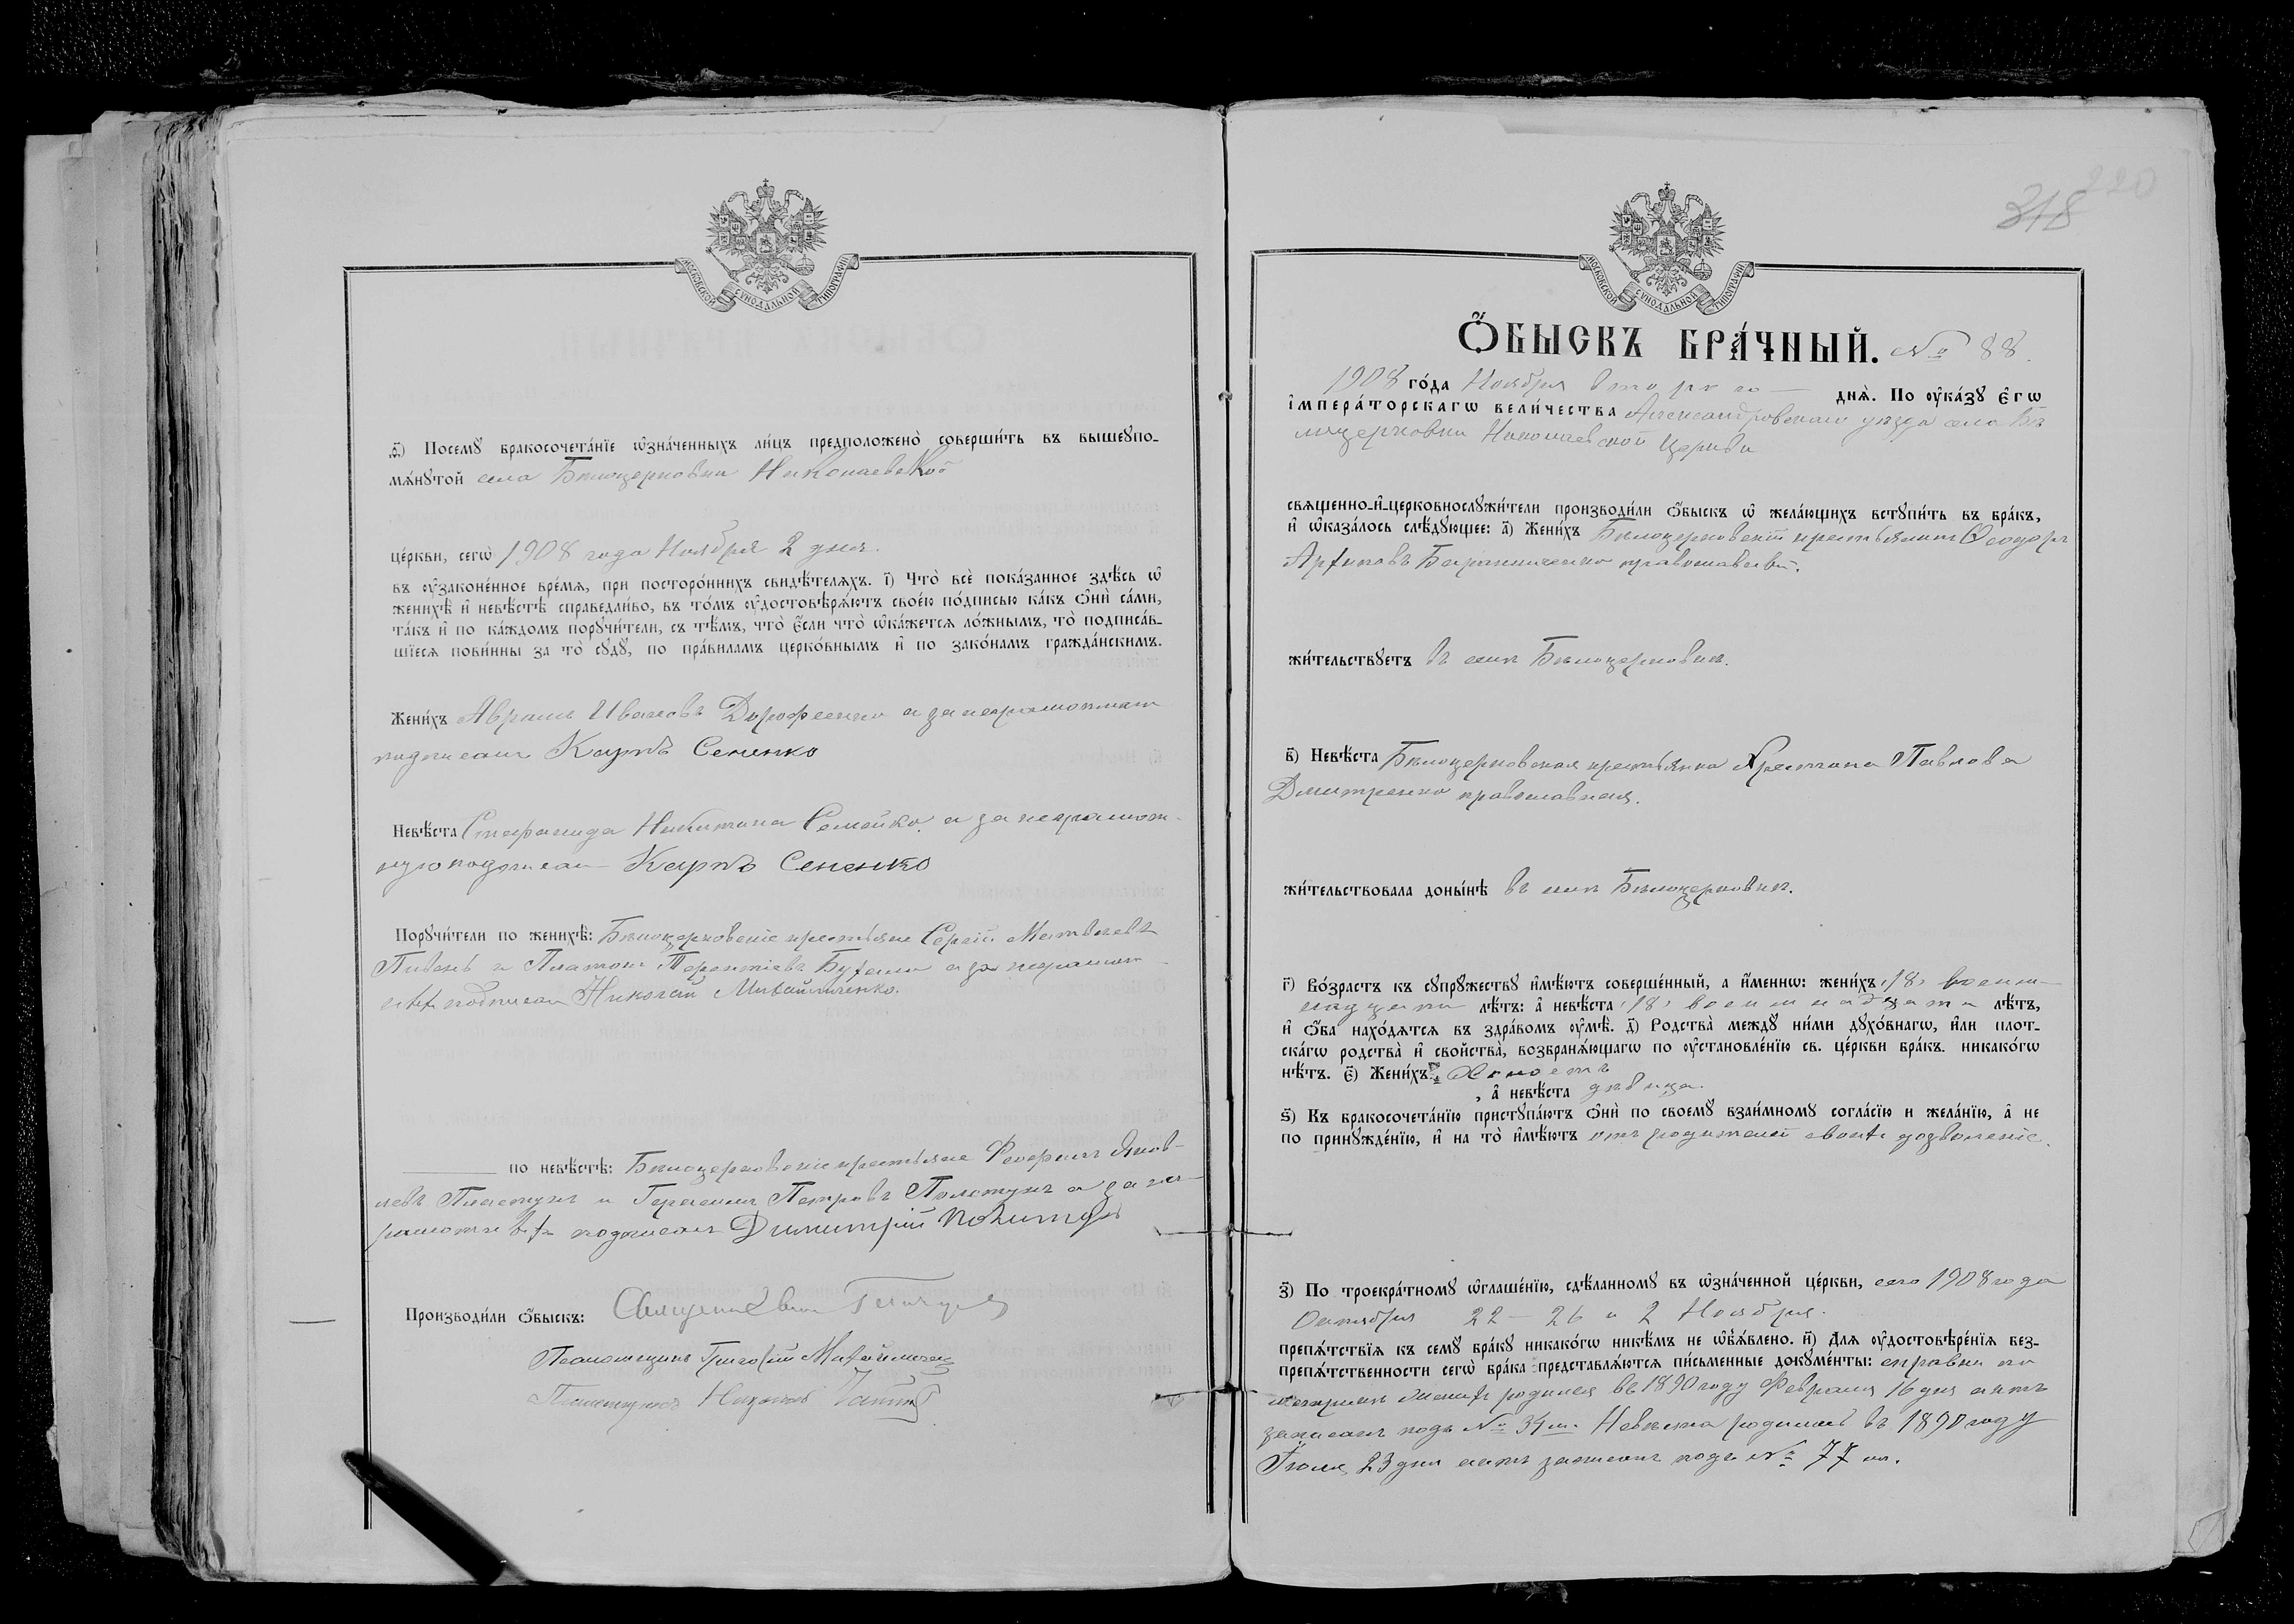 МОСКОВСКОЙ СѴНОДАЛЬНОЙ ТИПОГРАФІИ
ѳ҃) Посемꙋ бракосочета́нїе ѡ҆зна́ченныхъ ли́цъ предположено̀ соверши́ть въ вышеꙋпо-
мѧ́нꙋтой села Бѣлоцерковки Николаевской
це́ркви, сегѡ̀ 1908 года Ноября 2 дня.
въ ᲂу҆зако́ненное вре́мѧ, при посторо́ннихъ свидѣ́телѧхъ. і҃) Что̀ всѐ пока́занное здѣ́сь ѡ҆
женихѣ̀ и҆ невѣ́стѣ справедли́во, въ то́мъ ᲂу҆достовѣрѧ́ютъ свое́ю по́дписью ка́къ ѻ҆нѝ са́ми,
та́къ и҆ по ка́ждомъ порꙋчи́тели, съ тѣ́мъ, что̀ є҆́сли что̀ ѡ҆ка́жетсѧ ло́жнымъ, то̀ подписа́в-
шїесѧ пови́нны за то̀ сꙋдꙋ̀, по пра́виламъ церко́внымъ и҆ по зако́намъ гражда́нскимъ.
Жени́хъ Авраамъ Ивановъ Дорофеенко а за неграмотнаго
подписалъ Карпъ Сененко
Невѣ́ста Стефанида Никитина Семейко а за неграмот-
ную подписалъ Карпъ Сененко
Порꙋчи́тели по женихѣ̀: Бѣлоцерковскіе крестьяне Сергій Матвѣевъ
Пивень и Платонъ Терентіевъ а за неграмот-
ныхъ подписалъ Николай Михайличенко.
по невѣ́стѣ: Бѣлоцерковскіе крестьяне Яков-
левъ Пластунъ и Герасимъ Петровъ а за не-
грамотныхъ подписалъ Димитрій
Производи́ли ѻ҆́быскъ: Священникъ
Псаломщикъ Григорій
Псаломщикъ
220
318
МОСКОВСКОЙ СѴНОДАЛЬНОЙ ТИПОГРАФІИ
Ѻ҆́БЫСКЪ БРА́ЧНЫЙ. № 88.
1908 го́да Ноября втораго днѧ̀. По ᲂу҆ка́зꙋ є҆гѡ̀
і҆мпера́торскагѡ вели́чества Александровскаго уѣзда села Бѣ-
лоцерковки Николаевской Церкви
свѧщенно-и҆-церковнослꙋжи́тели производи́ли ѻ҆́быскъ ѡ҆ жела́ющихъ встꙋпи́ть въ бра́къ,
и҆ ѡ҆каза́лось слѣ́дꙋющее: а҃) Жени́хъ Бѣлоцерковскій крестьянинъ Ѳеодоръ
Архиповъ православный.
жи́тельствꙋетъ въ селѣ Бѣлоцерковкѣ.
в҃) Невѣ́ста Бѣлоцерковская крестьянка Христина Павлова
Дмитренко православная.
жи́тельствовала доны́нѣ въ селѣ Бѣлоцерковкѣ.
г҃) Во́зрастъ къ сꙋпрꙋ́жествꙋ и҆мѣ́ютъ соверше́нный, а и҆́менно: жени́хъ 18, восем-
надцати лѣ́тъ: а҆ невѣ́ста 18, восемнадцати лѣ́тъ,
и҆ ѻ҆́ба нахо́дѧтсѧ въ здра́вомъ ᲂу҆мѣ̀. д҃) Родства̀ междꙋ̀ ни́ми дꙋхо́внагѡ, и҆лѝ плот-
ска́гѡ родства̀ и҆ свойства̀, возбранѧ́ющагѡ по ᲂу҆становле́нїю св. це́ркви бра́къ. никако́гѡ
нѣ́тъ. є҃) Жени́хъ: Холостъ
, а҆ невѣ́ста дѣвица.
ѕ҃) Къ бракосочета́нїю пристꙋпа́ютъ ѻ҆нѝ по своемꙋ̀ взаи́мномꙋ согла́сїю и жела́нїю, а҆ не
по принꙋжде́нїю, и҆ на то̀ и҆мѣ́ютъ отъ родителей своихъ дозволеніе.
з҃) По троекра́тномꙋ ѡ҆глаше́нїю, сдѣ́ланномꙋ въ ѡ҆зна́ченной це́ркви, сего 1908 года
Октября 22 – 26 и 2 Ноября.
препѧ́тствїѧ къ семꙋ̀ бра́кꙋ никако́гѡ никѣ́мъ не ѡ҆б̾ѧ́влено. и҃) Длѧ ᲂу҆достовѣре́нїѧ без-
препѧ́тственности сегѡ̀ бра́ка представлѧ́ютсѧ пи́сьменные докꙋме́нты: справки по
метрикѣ Женихъ родился въ 1890 году Февраля 16 дня актъ
записанъ подъ № 34 м. Невѣста родилась въ 1890 году
Іюля 23 дня актъ записанъ подъ № 77 ж.